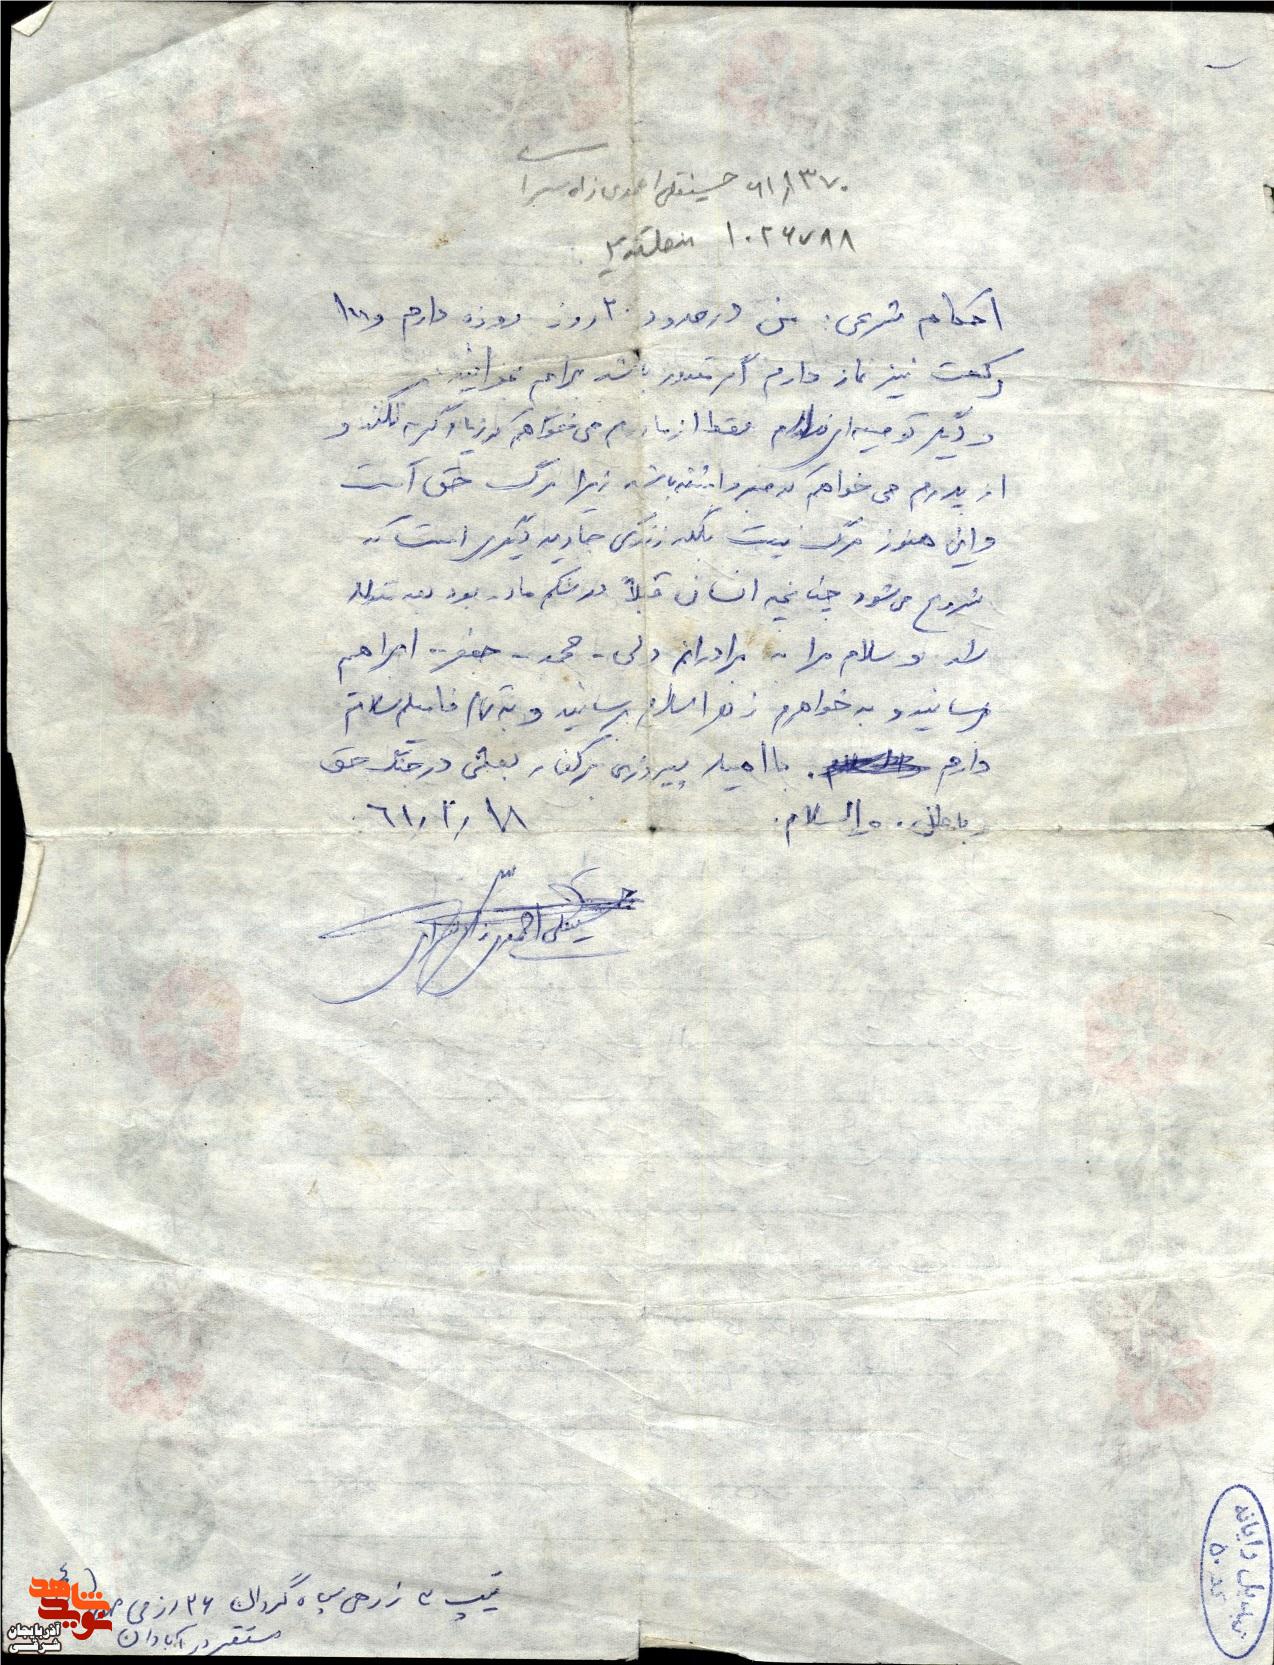 ۶۱/۱۳۷۰ حسینقلی احمدی زاد سرای
۱۰۲۶۷۸۸ منطقه ۲
احکام شرعی: من در حدود ۲۰ روز روزه دارم و
رکعت نیز نماز دارم اگر مقدور باشد برایم بخوانید
و دیگر توصیه‌ای ندارم فقط از مادرم می‌خواهم که زیاد گریه نکند و
از پدرم می‌خواهم که صبر داشته باشد زیرا مرگ حق است
و این هنوز مرگ نیست بلکه زندگی جاوید دیگری است که
شروع می‌شود چنانچه انسان قبلاً در شکم مادر بود بعد متولد
شد و سلام مرا به برادرانم ولی - محمد - جعفر - ابراهیم
برسانید و به خواهرم زهرا سلام برسانید و به تمام فامیل سلام
دارم . با امید پیروزی بر کفار بعثی در جنگ حق
و باطل . والسلام. ۶۱/۲/۱۸
حسینقلی احمدی زاد سرای
تیپ ۳ زرهی سپاه گردان ۲۶ رزمی
مستقر در آبادان
تبدیل رایانه
کد ۵۰
شاهد
نوید
آذربایجان
شرقی